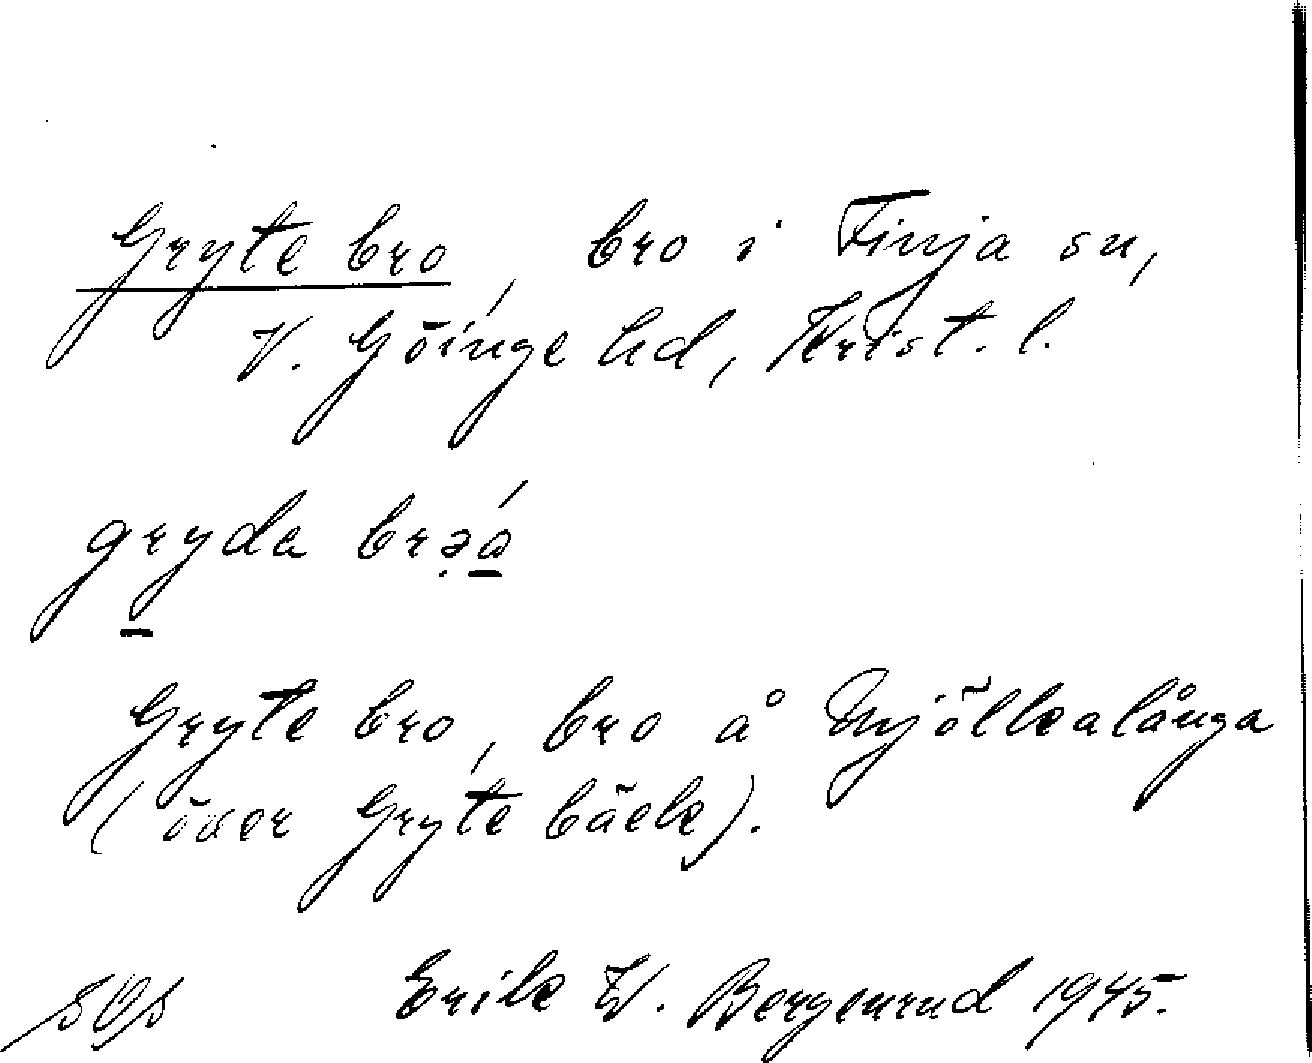 Gryte bro, bro i Finja sn,
V. Göinge hd, Krist. l.
gryda brə̣á̠
Gryte bro, bro å Mjölkalånga
(över Gryte bäck).
Erik W. Bergenrud 1945.